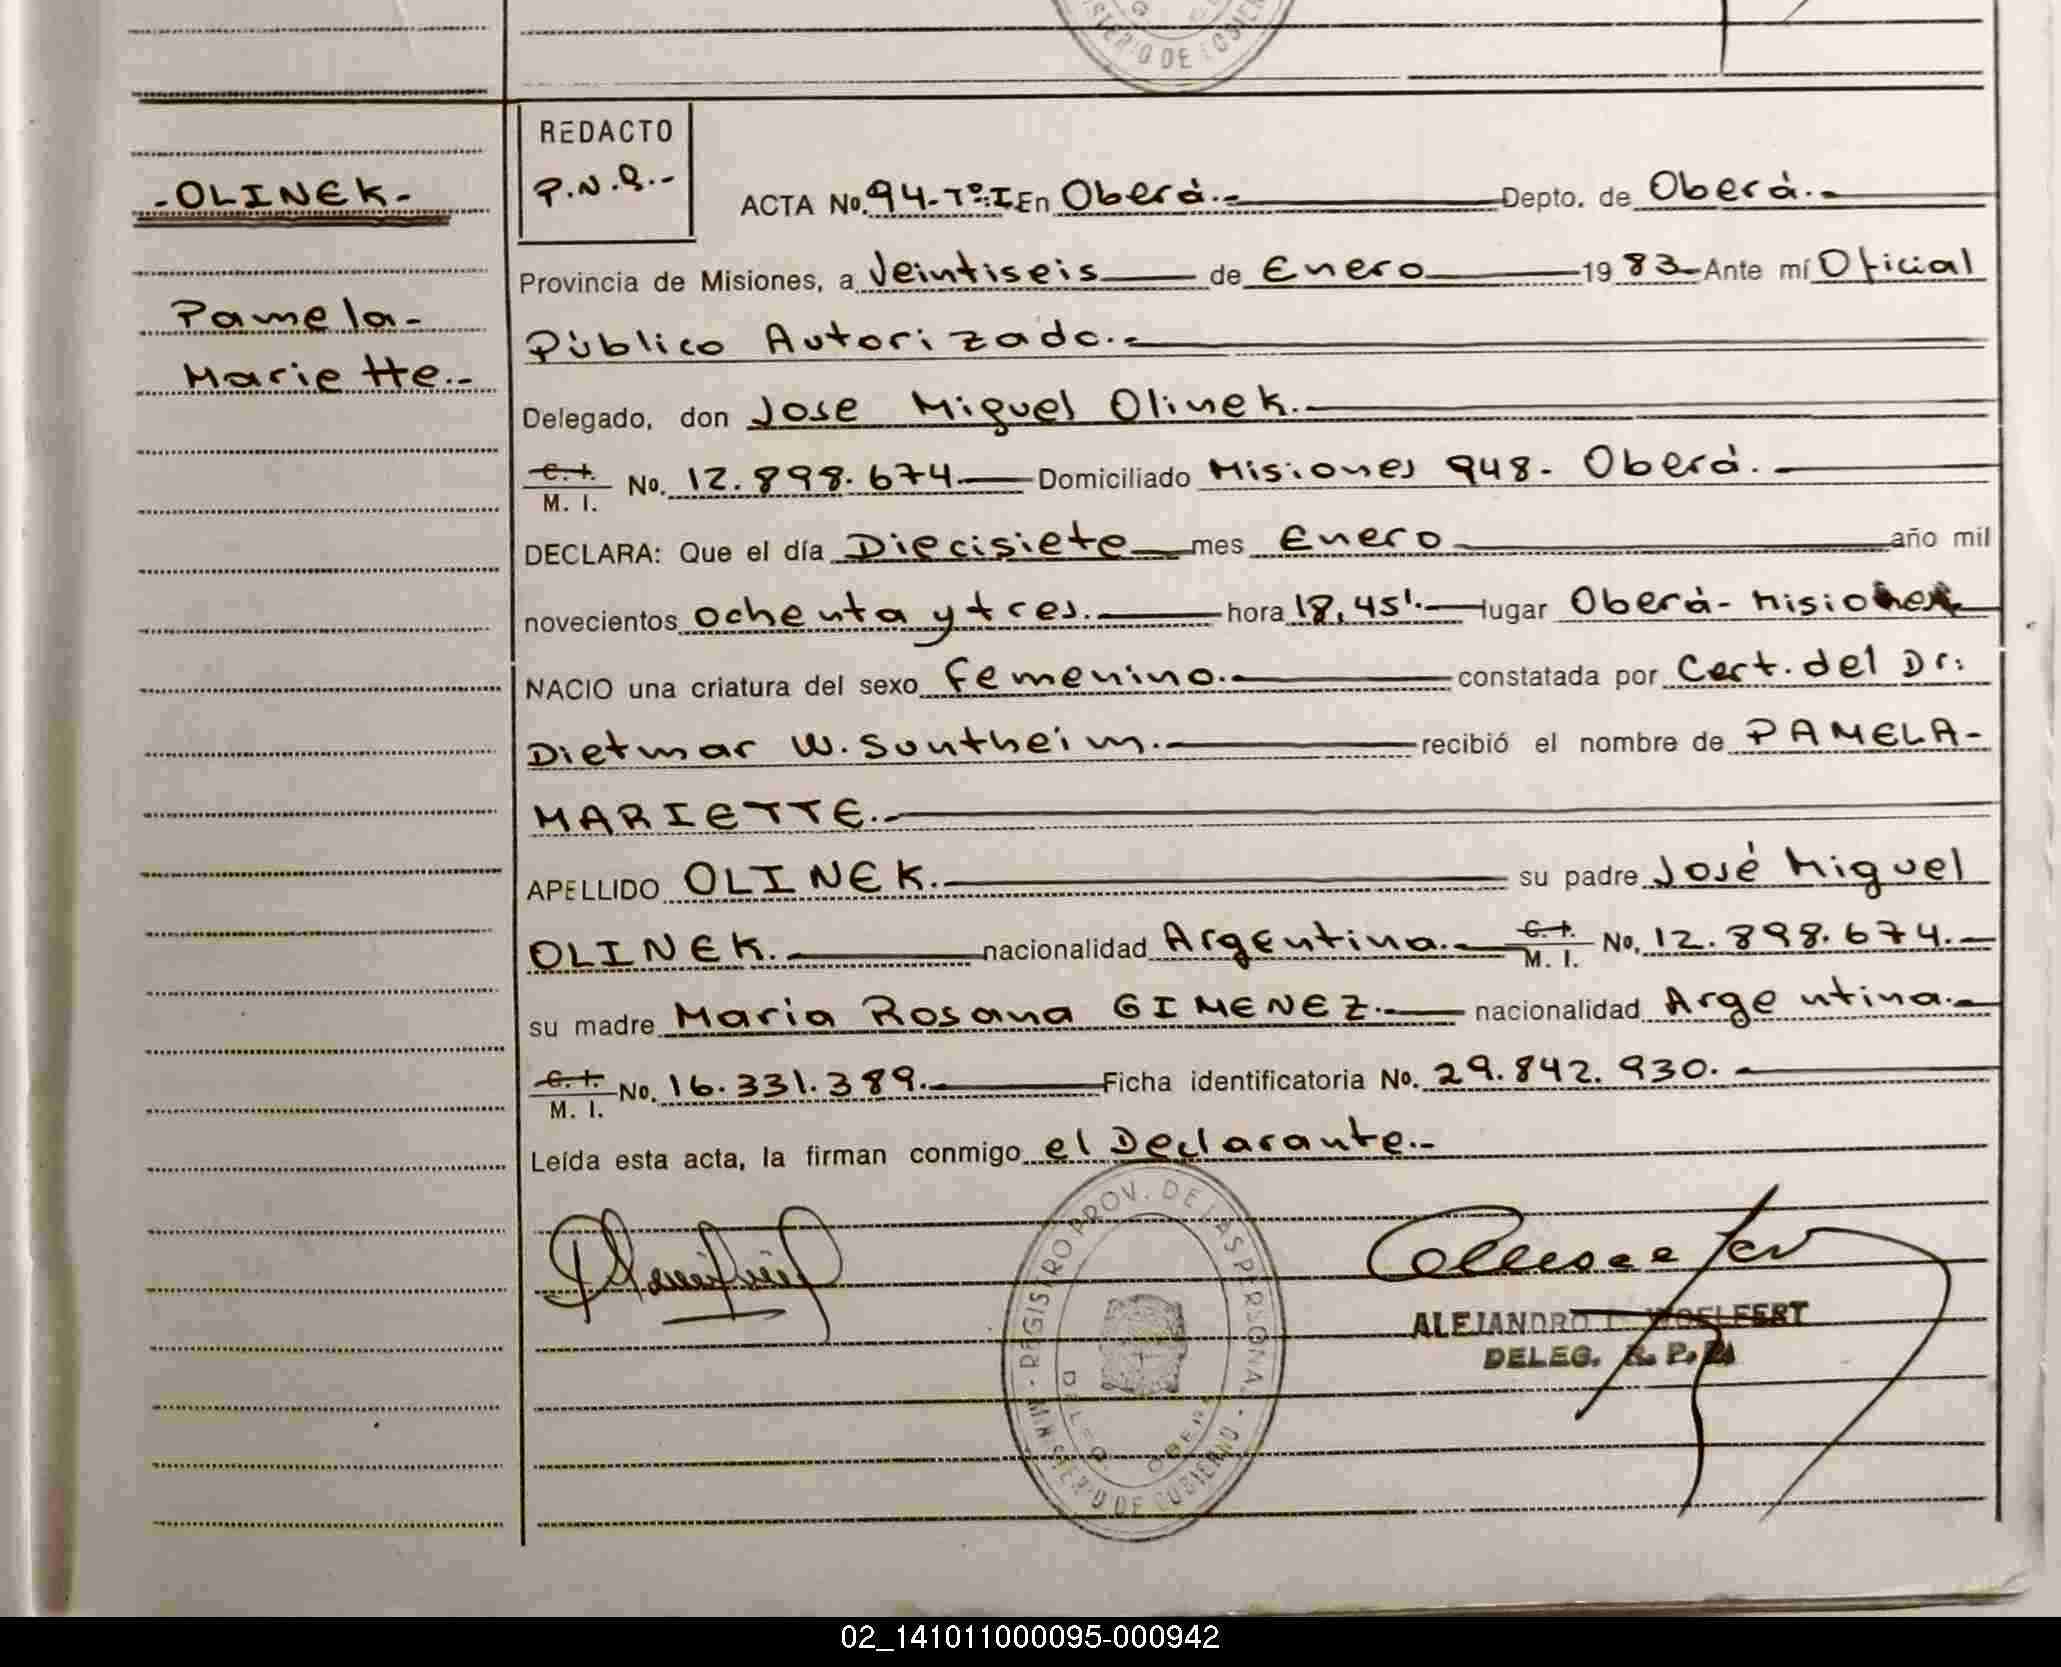 MINISTERIO DE GOBIERNO
-OLINEK-
Pamela-
Mariette.-
REDACTO
ACTA No. 94-Tº:I. En Oberá.- Depto. de Oberá.-
Provincia de Misiones, a Veintiseis de Enero 1983- Ante mí Oficial
Público Autorizado.-
Delegado, don Jose Miguel Olinek.-
C.I. M. I. No. 12.898.674 Domiciliado Misiones 948- Oberá.-
DECLARA: Que el día Diecisiete mes Enero año mil
novecientos ochenta y tres.- hora 18,45'.- lugar Oberá- Misiones
NACIO una criatura del sexo femenino.- constatada por Cert. del Dr:
Dietmar W. Sontheim.- recibió el nombre de PAMELA-
MARIETTE.-
APELLIDO OLINEK.- su padre José Miguel
OLINEK.- nacionalidad Argentina.- C.I. M. I. No. 12.898.674.-
su madre Maria Rosana GIMENEZ.- nacionalidad Argentina.-
C.I. M. I. No. 16.331.389.- Ficha identificatoria No. 29.842.930.-
Leída esta acta, la firman conmigo el Declarante.-
REGISTRO PROV. DE LAS PERSONAS - MINISTERIO DE GOBIERNO -
DELEG. OBERA
ALEJANDRO
DELEG. R. P.
02_141011000095-000942